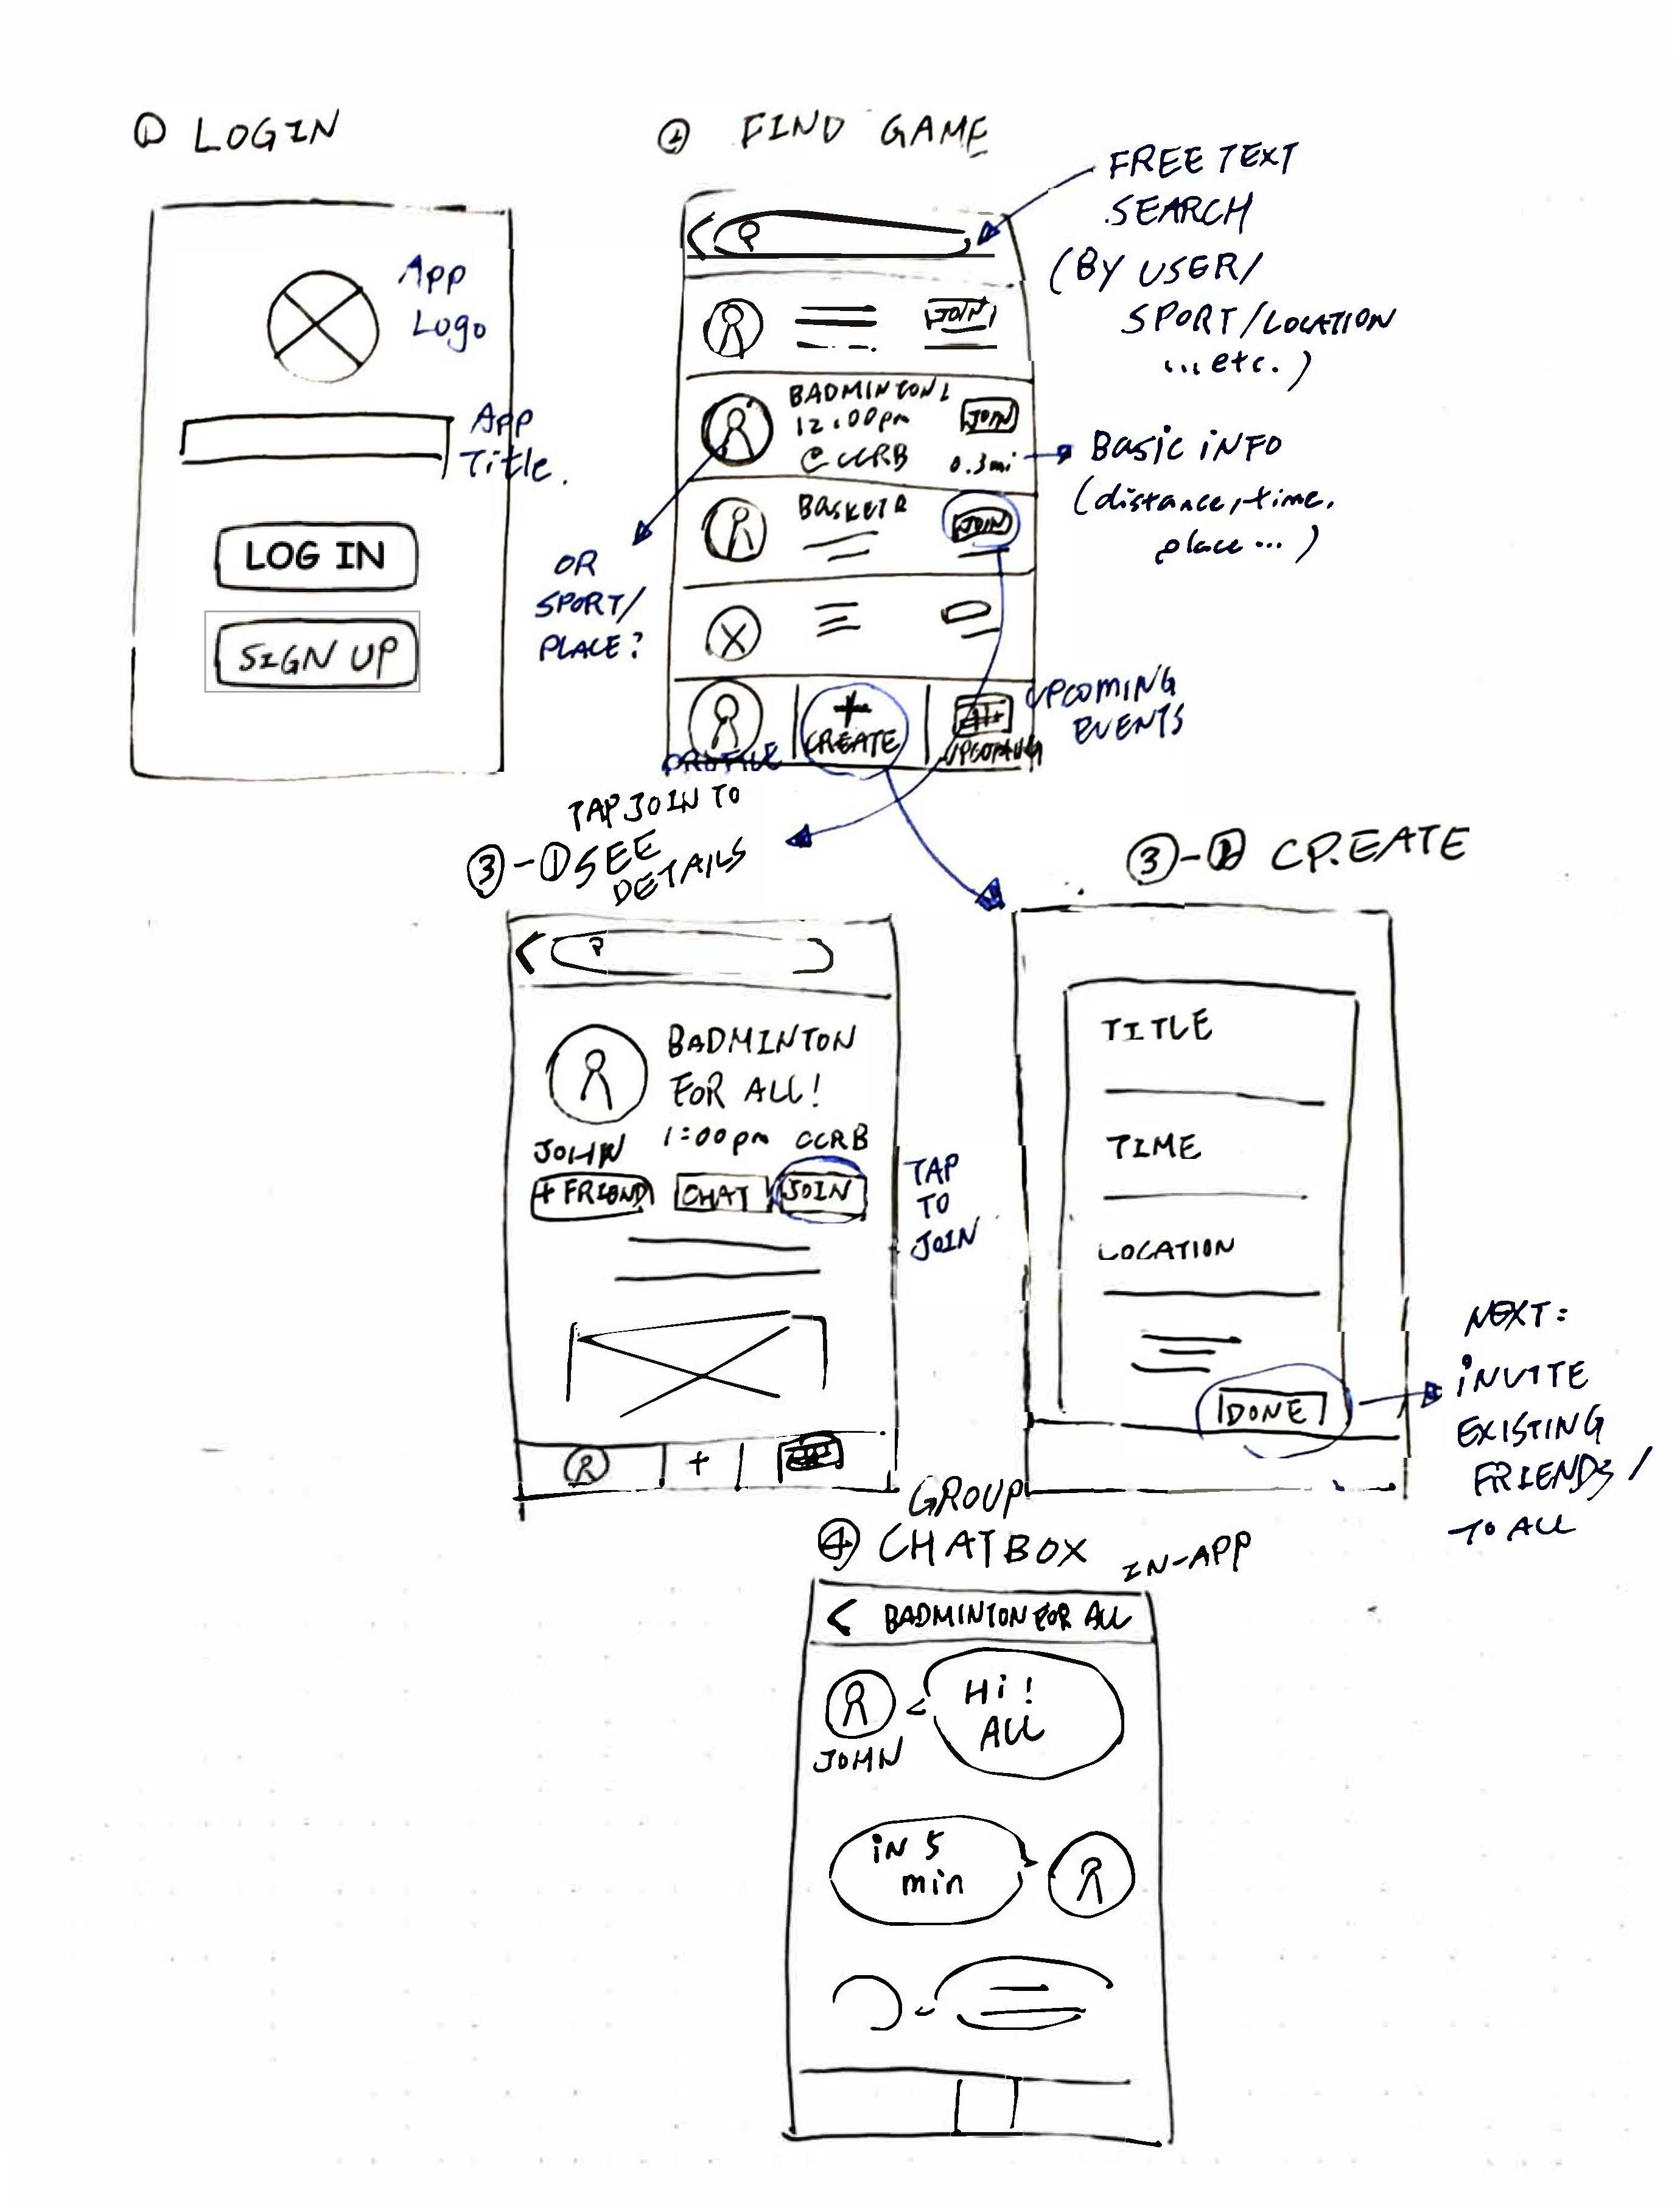 ① LOGIN
App
Logo
App
Title.
LOG IN
SIGN UP
② FIND GAME
FREE TEXT
SEARCH
(BY USER/
SPORT/LOCATION
...etc.)
JOIN
BADMINTON
12:00pm
@ CCRB
JOIN
0.3mi
Basic iNFO
(distance, time,
place...)
BASKET
JOIN
OR
SPORT/
PLACE?
PROFILE
+
CREATE
UPCOMING
UPCOMING
EVENTS
TAP JOIN TO
③-① SEE
DETAILS
BADMINTON
FOR ALL!
1:00pm CCRB
JOHN
+ FRIEND
CHAT
JOIN
TAP
TO
JOIN
+
③-② CREATE
TITLE
TIME
LOCATION
DONE
NEXT:
iNVITE
EXISTING
FRIENDS/
TO ALL
GROUP
④ CHATBOX
IN-APP
< BADMINTON FOR ALL
Hi!
ALL
JOHN
iN 5
min